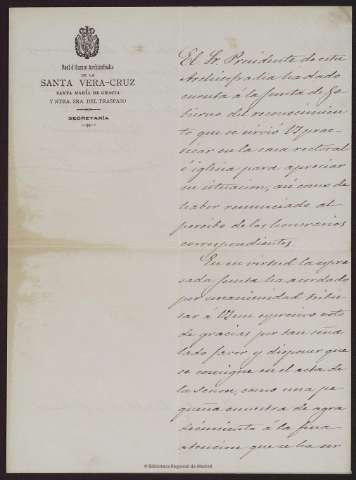 Real é Ilustre Archicofradía
DE LA
SANTA VERA-CRUZ
SANTA MARÍA DE GRACIA
Y NTRA. SRA. DEL TRASPASO
SECRETARÍA
El Sr. Presidente de esta
Archicofradia ha dado
cuenta á la Junta de Go-
bierno del reconocimien-
to que se sirvió V. prac-
ticar en la casa rectoral
é iglesia para apreciar
su situacion, asi como de
haber renunciado al
percibo de los honorarios
correspondientes.
En su virtud la expre-
sada Junta ha acordado
por unanimidad tribu-
tar á V. un expresivo voto
de gracias por tan seña-
lado favor y disponer que
se consigne en el acta de
la sesion, como una pe-
queña muestra de agra-
decimiento á la fina
atencion que se ha ser-
© Biblioteca Regional de Madrid